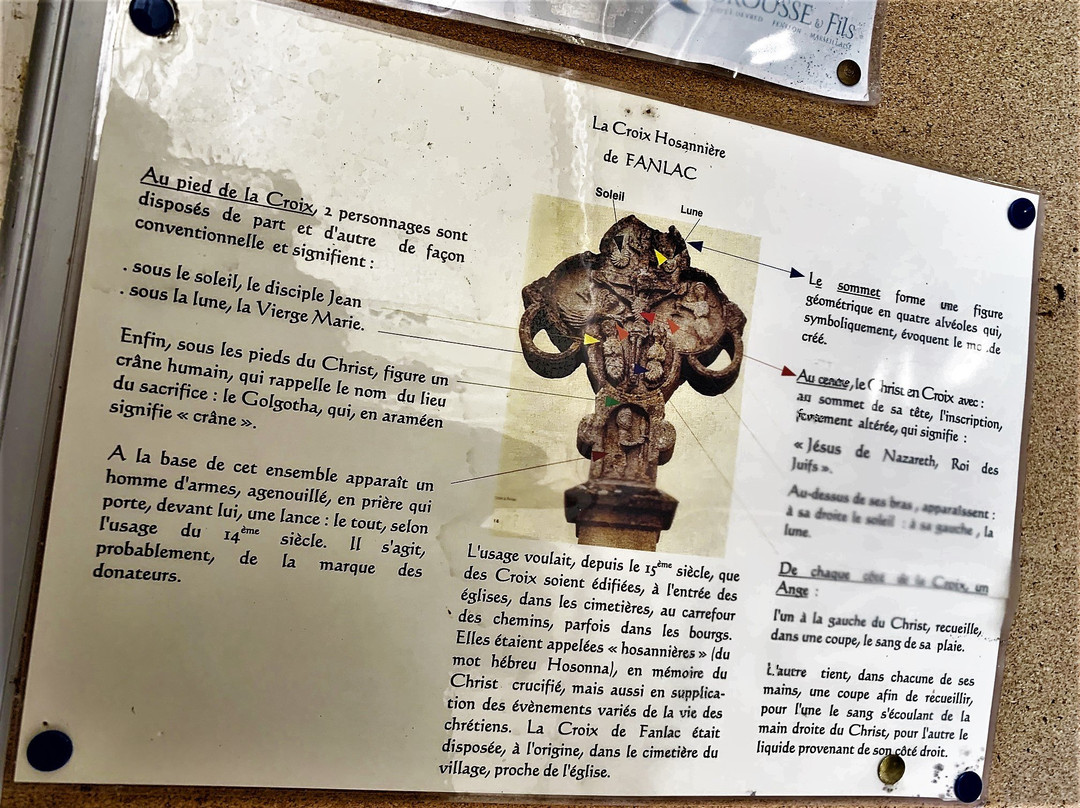 ROUSSE & Fils
La Croix Hosannière
de FANLAC
Soleil
Lune
Au pied de la Croix, 2 personnages sont
disposés de part et d'autre de façon
conventionnelle et signifient :
. sous le soleil, le disciple Jean
. sous la lune, la Vierge Marie.
Enfin, sous les pieds du Christ, figure un
crâne humain, qui rappelle le nom du lieu
du sacrifice : le Golgotha, qui, en araméen
signifie « crâne ».
A la base de cet ensemble apparaît un
homme d'armes, agenouillé, en prière qui
porte, devant lui, une lance : le tout, selon
l'usage du 14ème siècle. Il s'agit,
probablement, de la marque des
donateurs.
14
L'usage voulait, depuis le 15ème siècle, que
des Croix soient édifiées, à l'entrée des
églises, dans les cimetières, au carrefour
des chemins, parfois dans les bourgs.
Elles étaient appelées « hosannières » (du
mot hébreu Hosonna), en mémoire du
Christ crucifié, mais aussi en supplica-
tion des évènements variés de la vie des
chrétiens. La Croix de Fanlac était
disposée, à l'origine, dans le cimetière du
village, proche de l'église.
Le sommet forme une figure
géométrique en quatre alvéoles qui,
symboliquement, évoquent le
créé.
Au centre, le Christ en Croix avec :
au sommet de sa tête, l'inscription,
altérée, qui signifie :
« Jésus de Nazareth, Roi des
Juifs ».
Au-dessus de ses bras, apparaissent :
à sa droite le soleil : à sa gauche, la
lune.
De chaque côté de la Croix, un
Ange :
l'un à la gauche du Christ, recueille,
dans une coupe, le sang de sa plaie.
L'autre tient, dans chacune de ses
mains, une coupe afin de recueillir,
pour l'une le sang s'écoulant de la
main droite du Christ, pour l'autre le
liquide provenant de son côté droit.